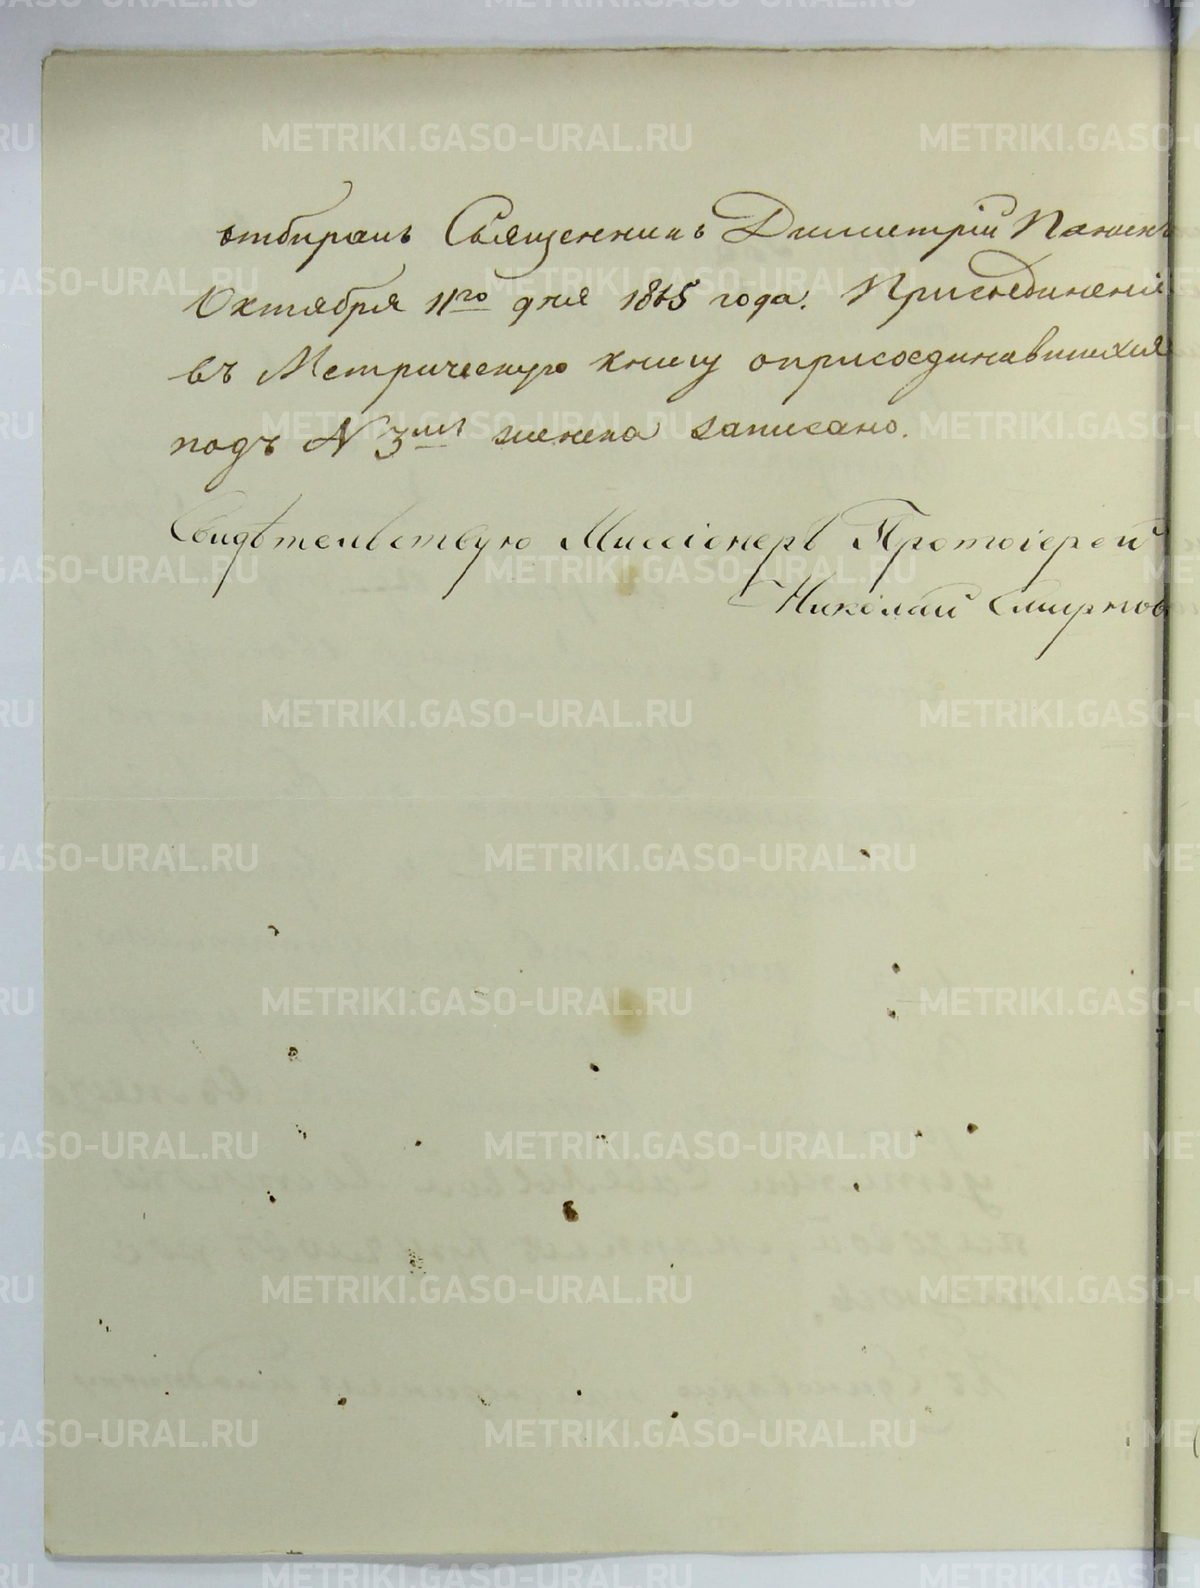 отбиралъ Священникъ Димитрій
Октября 11го дня 1865 года. Присоединеніе
въ Метрическую книгу оприсоединившихся
подъ N 3мъ женска записано.
Свидѣтельствую Миссіонеръ Протоіерей
Николай Смирновъ
METRIKI.GASO-URAL.RU